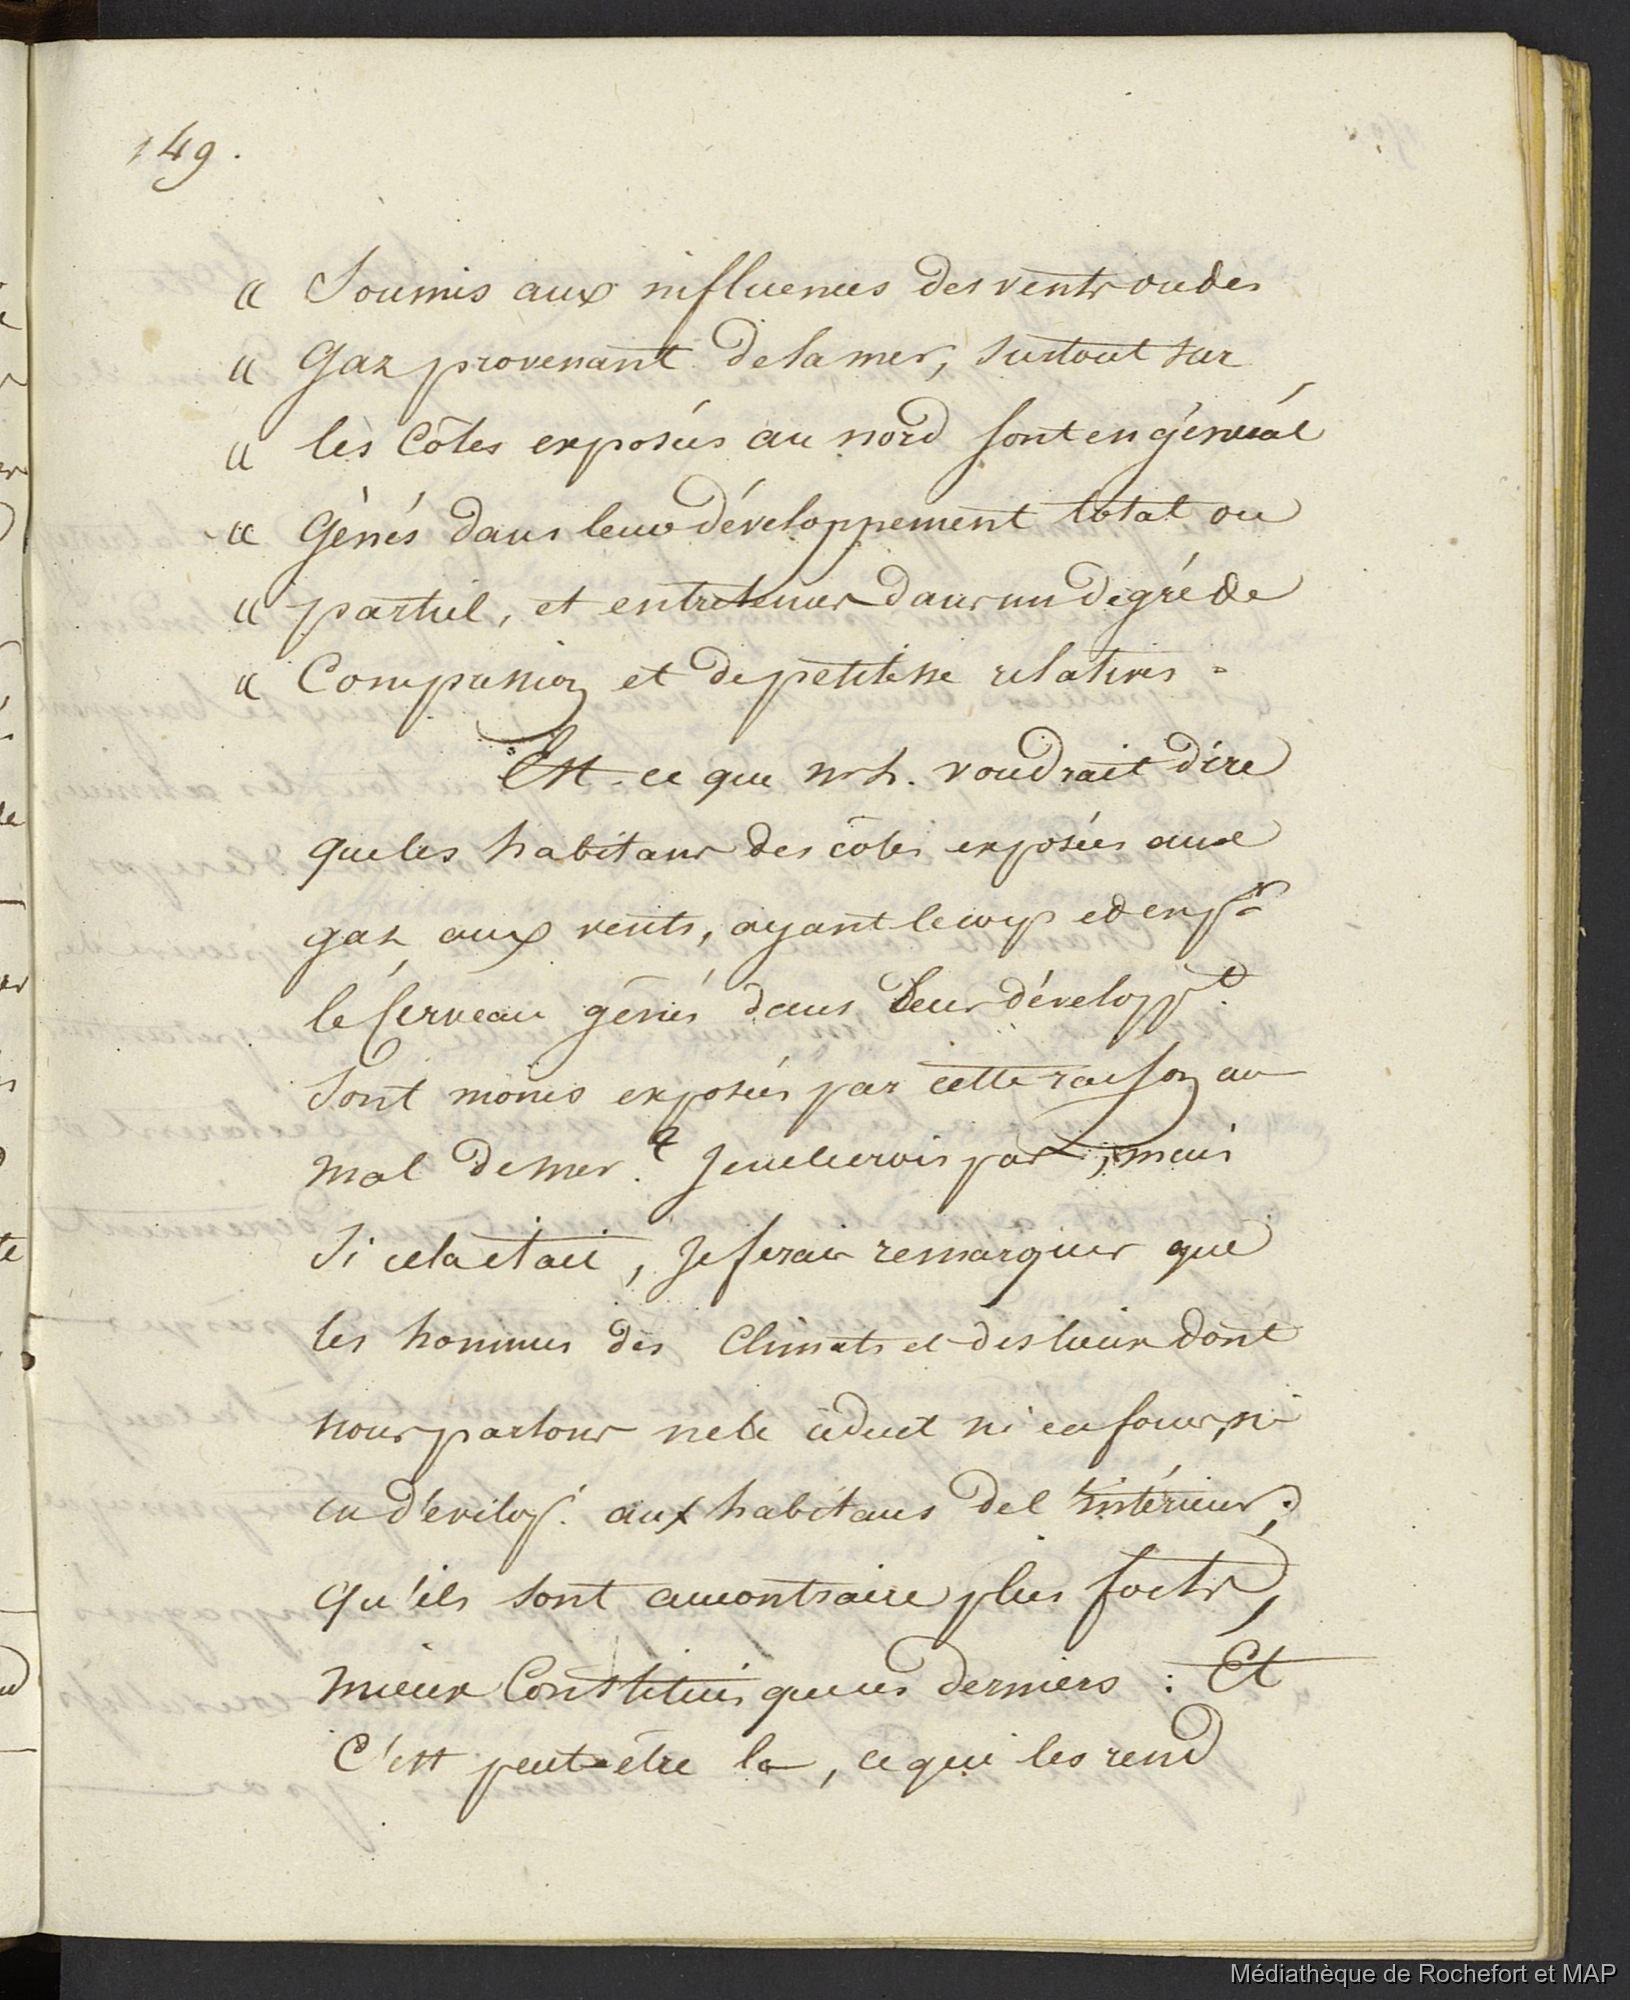 149.
« Soumis aux influences des vents ou des
« Gaz provenant de la mer, surtout sur
« les Côtes exposées au nord sont en général
« Gènés dans leur développement total ou
« partiel, et entretenus dans un dégré de
« Compression et de petitesse relatives.
Est-ce que Mr h. voudrait dire
que les habitans des côtes exposées aux
gaz, aux vents, ayant le corps et
le Cerveau gènés dans leur développt
sont moins exposés par cette raison au
mal de mer? Je ne le crois pas, mais
si cela était, je ferais remarquer que
les hommes des Climats et des lieux dont
nous parlons ne le cèdent ni en force, ni
en dévelop. aux habitans de l'intérieur;
qu'ils sont au contraire plus forts,
mieux Constitués que ces derniers : Et
C'est peut-être la, ce qui les rend
Médiathèque de Rochefort et MAP